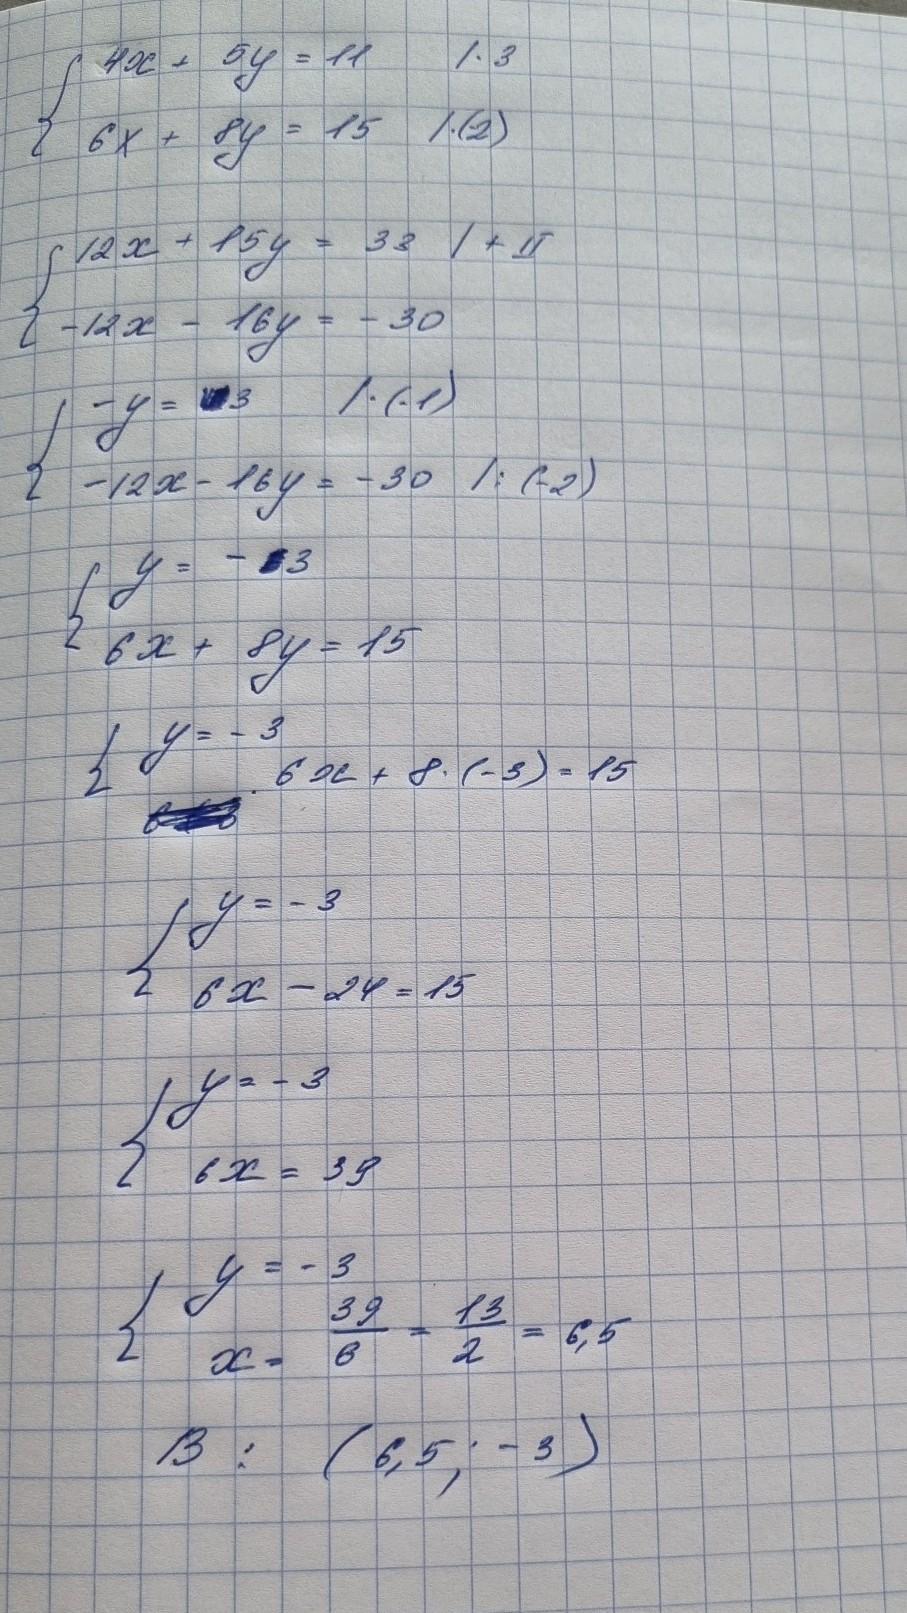 4x + 5y = 11 | · 3
6x + 8y = 15 | · (2)
12x + 15y = 33 | + II
-12x - 16y = -30
-y = 3 | · (-1)
-12x - 16y = -30 | : (-2)
y = -3
6x + 8y = 15
y = -3
6x + 8 · (-3) = 15
y = -3
6x - 24 = 15
y = -3
6x = 39
y = -3
x = 39/6 = 13/2 = 6,5
В : (6,5 ; -3)